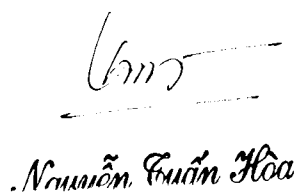 Nguyễn Tuấn Hòa